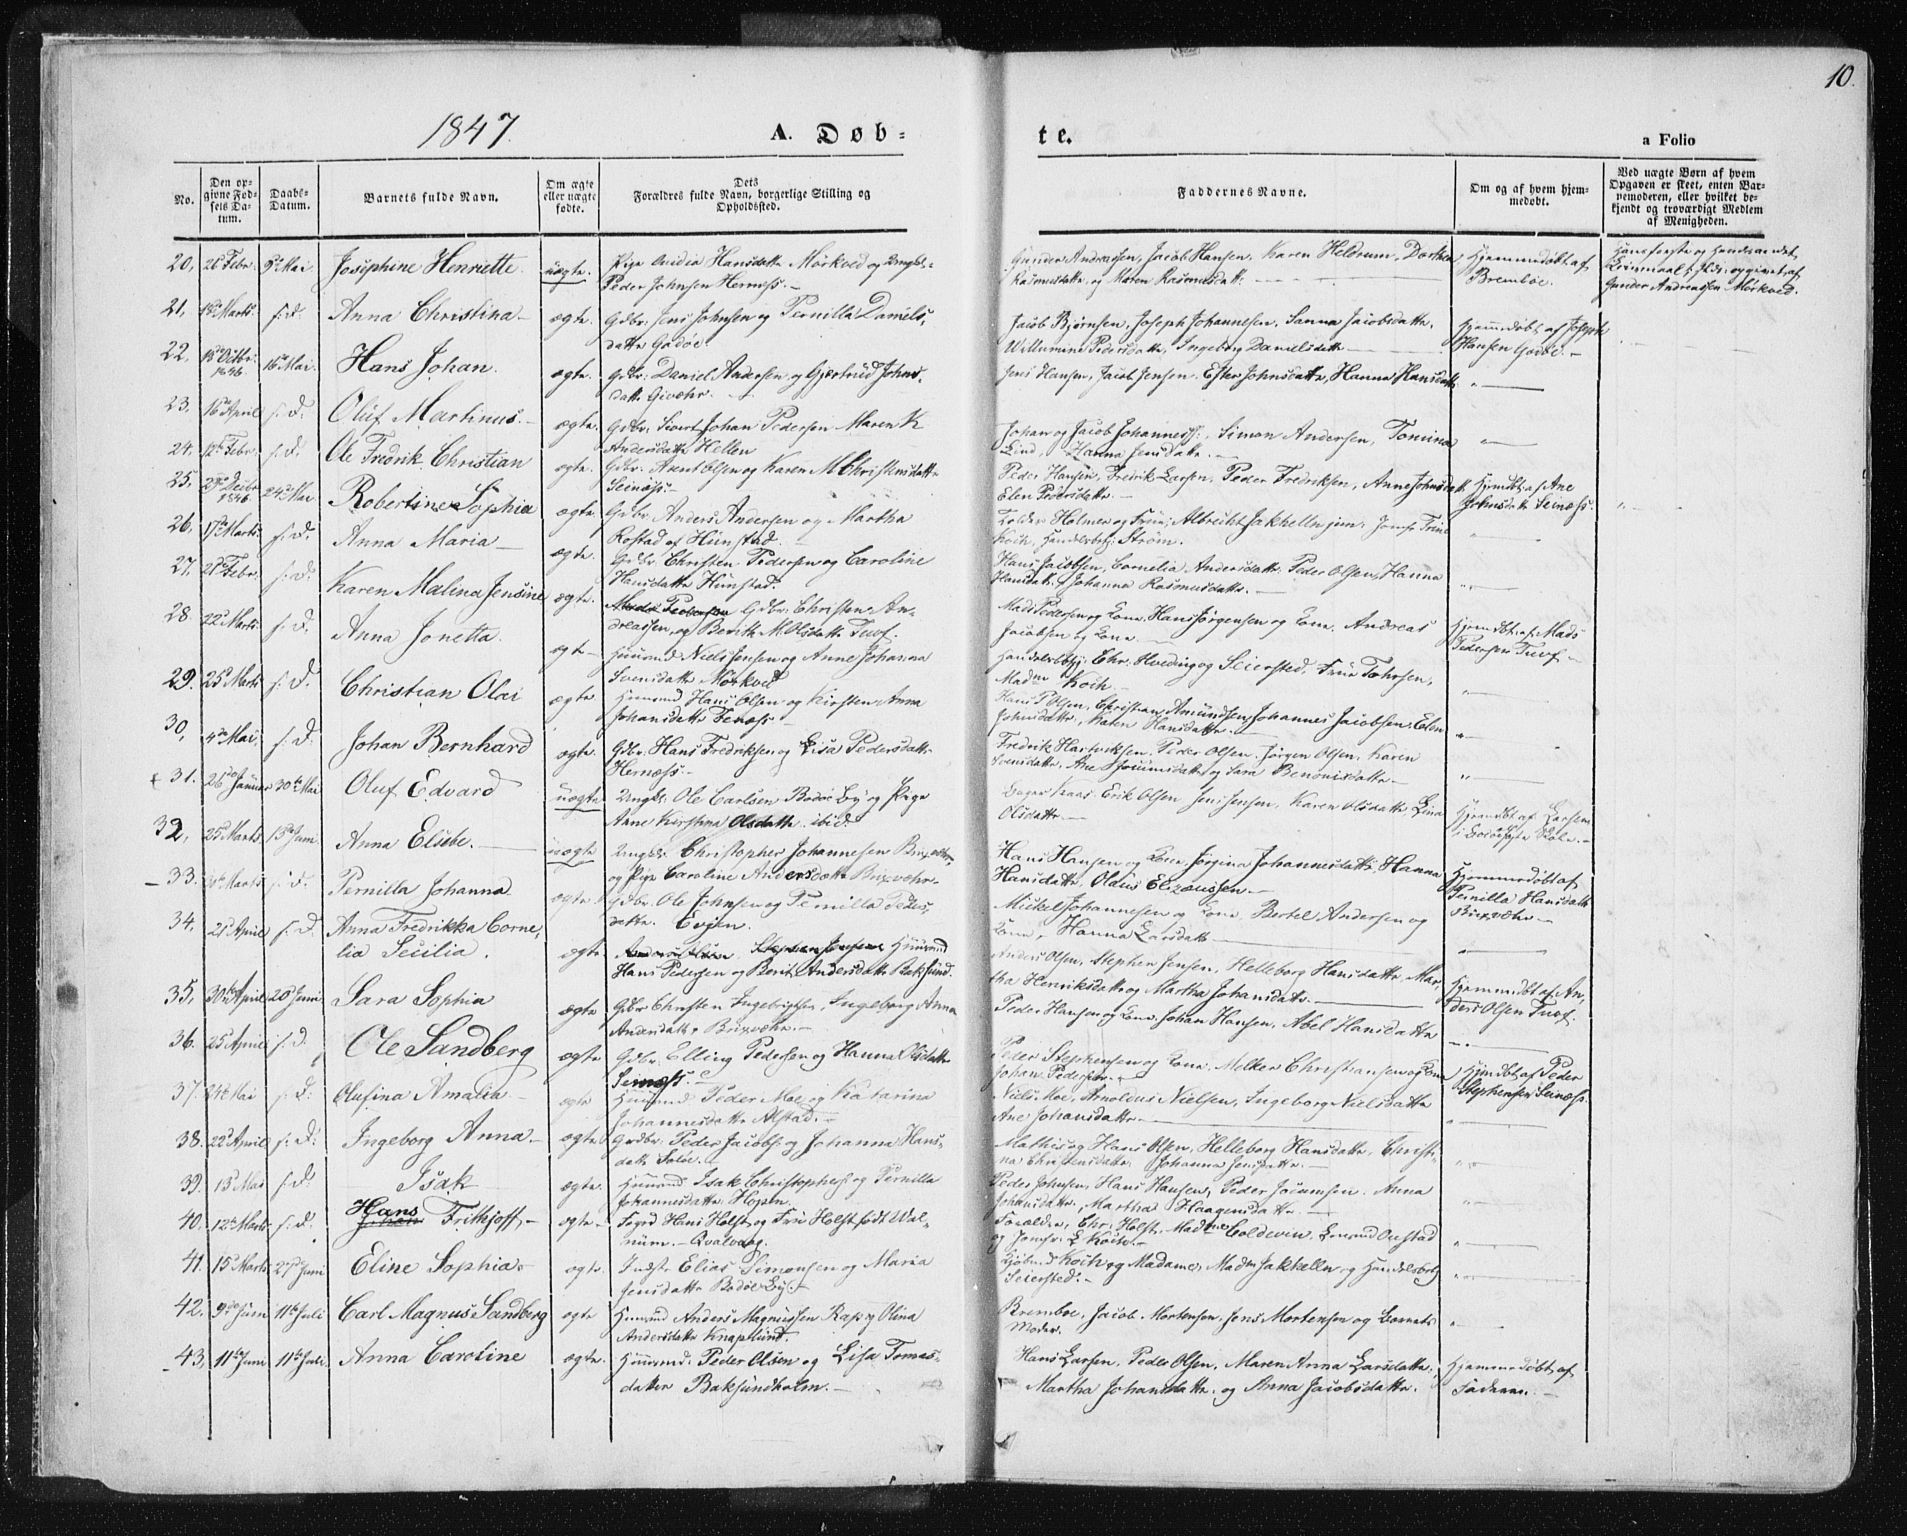 10.
1847.
A. Døb-
te.
a Folio
No.
Den op-
givne Fød-
sels Da-
tum.
Daabs-
Datum.
Barnets fulde Navn.
Om ægte
eller uægte
fødte.
Dets
Forældres fulde Navn, borgerlige Stilling og
Opholdssted.
Faddernes Navne.
Om og af hvem hjem-
medøbt.
Ved uægte Børn af hvem
Opgaven er skeet, enten Bar-
nemoderen, eller hvilket be-
kjendt og troværdigt Medlem
af Menigheden.
20, 26 Febr. 9de Mai Josephine Henriette. uægte. Pige Hansdatter Mørkved og Ungkl.
Peder Johnsen Herness.
Gunder Andreassen, Jacob Hansen, Karen Heldrum, Dorthea
Rasmusdatter og Maren Rasmusdatt.
Hjemmedøbt af
Bremboe.
opgivet af
Gunder Andreassen Mørkved.
21, 18de Marts. s. D. Anna Christina ægte. Gdbr. Jens Johnsen og Pernilla Daniels,
datter Godøe.
Jacob Bjørnsen, Joseph Johannesen, Sanna Jacobsdatter,
Willumine Pedersdatter, Ingeborg Danielsdatter
Hjemmedøbt af Joseph
Hansen Godøe.
22, 18de Octbr. 1846. 16de Mai. Hans Johan. ægte. Gdbr. Daniel Andersen og Gjertrud Johns,
datter Givær.
Jens Hansen, Jacob Jensen, Ester Johnsdatter, Hanna Hansdatter
23, 16de April s. D. Oluf Martinus. ægte. Gdbr. Sivert Johan Pedersen Maren K
Andersdatter Hellen
Johan og Jacob Johanness., Simon Andersen, Tomina
Lind, Hanna Jensdatter.
24. 12te Febr. s. D. Ole Fredrik Christian ægte. Gdbr. Arent Olsen og Karen M Christensdatter
Seiness.
Peder Hansen, Fredrik Larsen, Peder Fredriksen, Anne Johnsdatt.
Elen Pedersdatter.
25. 29de Decbr 1846. 24de Mai Robertine Sophia ægte Gdbr. Anders Andersen og Martha
Rostad af Hunstad.
Hjemdøbt af Ane
Johnsdatter Seiness.
Holmen og Frue, Albrecht Jakhelln jun. Jomfr. Trine
Koch, Handelsbetj. Strøm.
26. 17de Marts. s. D. Anna Maria ægte Gdbr. Christen Pedersen og Caroline
Hansdatter Hunstad.
Hans Jacobsen, Cornelia Andersdatter, Peder Olsen, Hanna
Hansdatt. Johanna Rasmusdatter.
27. 21de Febr. s. D. Karen Malina Jensine ægte. Mads Pedersen Gdbr. Christen An-
dreassen og Berith M. Olsdatter Tuv.
Mads Pedersen og Kone, Hans Jørgensen og Kone, Andreas
Jacobsen og Kone
Hjemdøbt af Mads
Pedersen Tuv
28. 22de Marts s. D. Anna Jonetta. ægte Huusmd Niels Jensen og Anne Johanna
Svensdatter Mørkved
Handelsbetj. Chr. Hveding og Seiersted, Frue
Madm Koch
29. 25de Marts s. D. Christian Olai ægte Huusmd Hans Olsen og Kirsten Anna
Johansdatter
Hans P Olsen, Christian Amundsen, Johannes Jacobsen, Elen
Johnsdatter, Karen Hansdatter.
30, 4de Mai. s. D. Johan Bernhard ægte. Gdbr. Hans Fredriksen og Lisa Pedersdatter
Herness.
Fredrik Hartviksen, Peder Olsen, Jørgen Olsen, Karen
Svensdatter, Ane og Sara Benonisdatter
31. 26de Januar 30te Mai Oluf Edvard uægte Ungkl. Ole Carlsen Bodøe By og Pige
Anne Kirstina Olsdatter ibid.
Erik Olsen, Jens Jensen, Karen Olsdatter, Lina
Olsdatter
Hjemdøbt af Larsen
32, 25de Marts 13de Juni Anna Elisebe. uægte Ungkl. Christopher Johannesen
og Pige Caroline Andersdatter Brixvær
Hans Hansen og Kone, Jørgina Johannesdatter, Hanna
Hansdatter, Oldus Elizæussen.
Hjemmedøbt af
Pernilla Hansdatter
Brixvær
33. Marts s. D. Pernilla Johanna ægte Gdbr. Ole Johnsen og Pernilla Peders,
datter. Evjen.
Mickel Johannesen og Kone, Bertel Andersen og
Kone, Hanna Larsdatter
34. 21de April s. D. Anna Fredrikka Corne,
lia Secilia. ægte Stephen Jensen Huusmd
Hans Pedersen og Berit Andersdatter Baksund.
Anders Olsen, Stephen Jensen, Helleborg Hansdatter, Mar,
tha Henriksdatter og Martha Johansdatter.
Hjemmedøbt af An,
ders Olsen Tuv.
35, 30te April 20de Juni Sara Sophia ægte Gdbr. Christen Ingebrigtsen, Ingeborg Anna
Andersdatter Brixvær.
Peder Hansen og Kone, Johan Hansen, Abel Hansdatter
36. 25de April s. D. Ole Sandberg ægte Gdbr. Elling Pedersen og Hanna Olsdatter
Seiness.
Peder Stephensen og Kone, Melker Christiansen og Kone
Johan Pedersen.
Hjemdøbt af Peder
Stephensen Seiness.
37. 24de Mai s. D. Olufina Amalia ægte Huusmd Peder Moe og Katarina
Johannesdatter Alstad.
Niels Moe, Arnoldus Nielsen, Ingeborg Nielsdatter
Ane Johansdatter
38. 22de April s. D. Ingeborg Anna ægte Gdbr. Peder Jacobs. og Johanna Hans,
datter
Mathis og Hans Olsen, Helleborg Hansdatter, Christi,
na Christensdatter, Johanna Jensdatter.
39. 13de Mai s. D. Isak ægte. Huusmd Isak Christophers. og Pernilla
Johannesdatter Hopen.
Peder Johnsen, Hans Hansen, Peder Joramsen, Anna
Johnsdatter, Martha Haagensdatter
40. 12te Marts s. D. Johan Hans Frithjoff ægte Fogd Hans Holst og Frue Holst født Wal-
num. Qvalvaag.
Forældre, Chr. Holst, Madme Coldevin,
og Jomfr. E Koch.
41. 15de Marts 27de Juni Eline Sophia ægte Indst. Elias Simonsen og Maria
Jensdatter Bodøe By
Kjøbmd Koch og Madame, Madm Jakhelln og Handelsbetj
Seiersted.
42. 9de Juni 11te Juli Carl Magnus Sandberg ægte Huusmd Anders Magnussen Rap og Olina
Andersdatter Knaplund.
Bremboe, Jacob Mortensen, Jens Mortensen og Barnets
Moder.
43, 11te Juni 11te Juli. Anna Caroline ægte. Huusmd. Peder Olsen og Lisa Tomas-
datter Baksundholm.
Hans Larsen, Peder Olsen, Maren Anna Larsdatter,
Martha Johansdatter og Anna Jacobsdatter.
Hjemmedøbt af
Faderen.